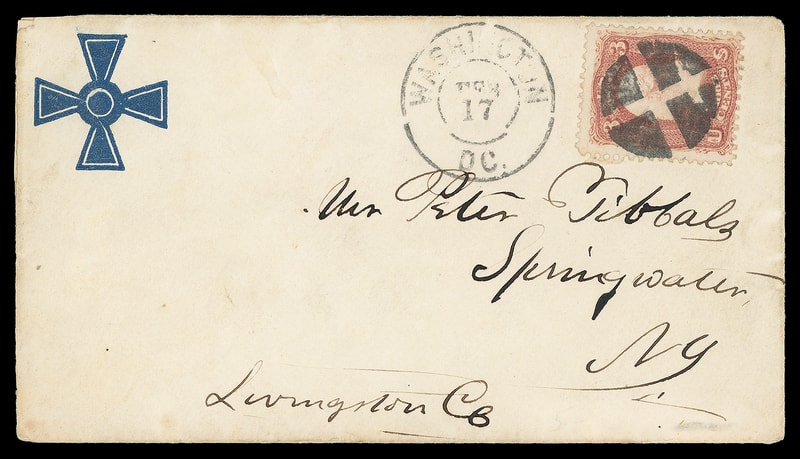 WASHINGTON
FEB
17
D.C.
3
3
U
S
Mr Peter Tibbals
Springwater,
NY
Livingston Co